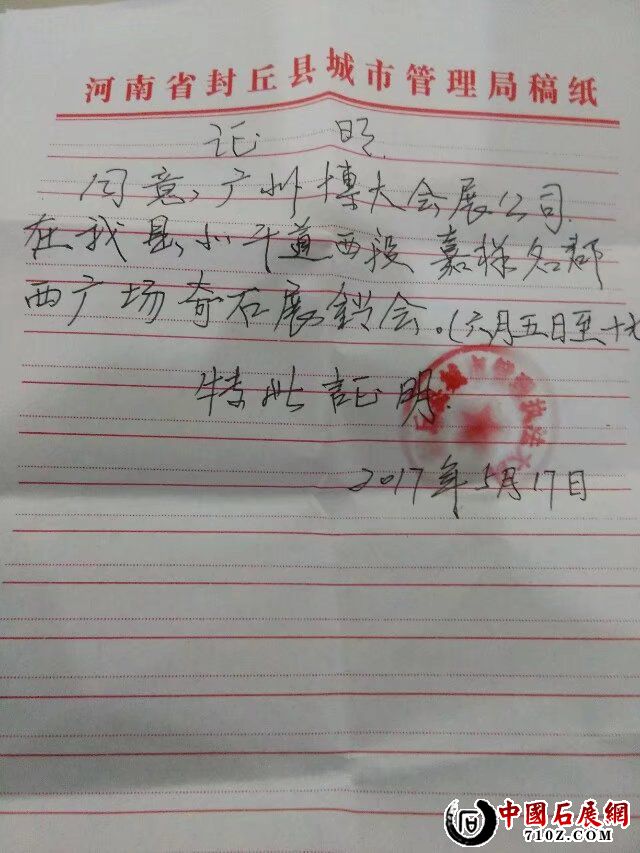 河南省封丘县城市管理局稿纸
证 明
同意，广州博大会展公司
在我县，北斗道西段嘉祥名都
西广场奇石展銷会。（六月五日至十
特此証明.
执法大
2017年5月17日
中國石展網
710Z.com